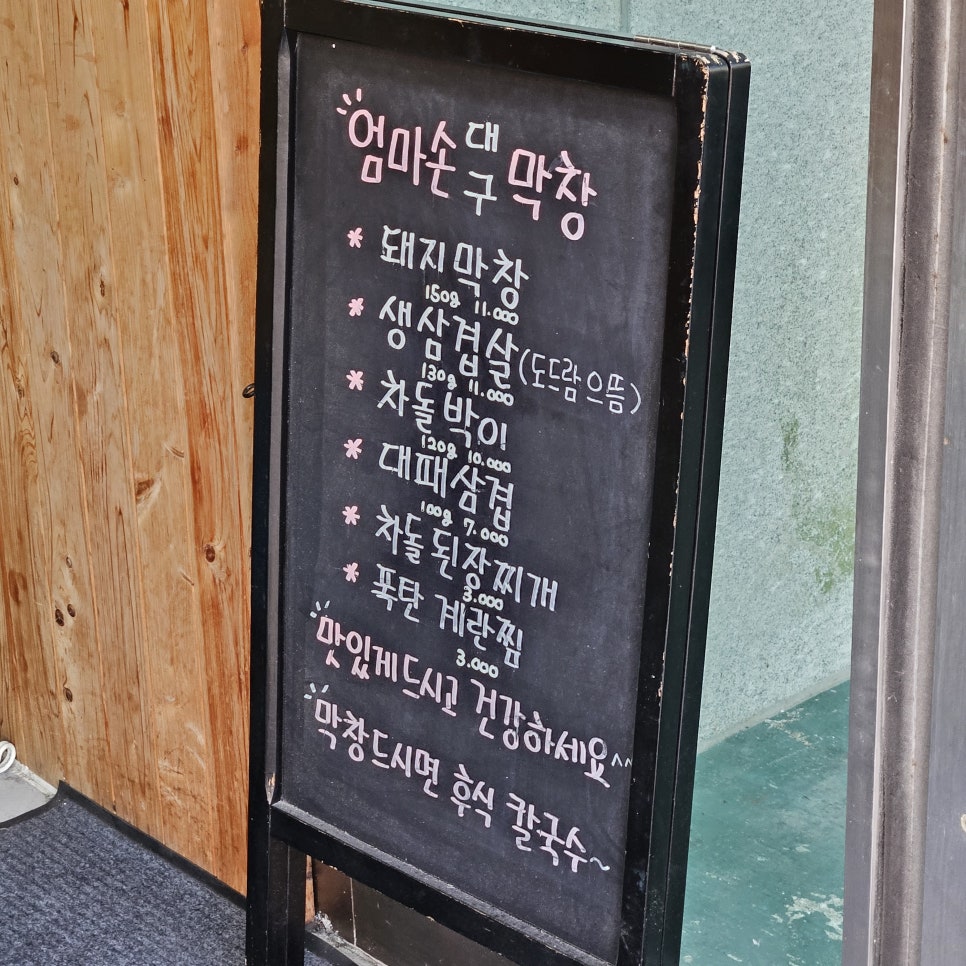 엄마손 대구 막창
* 돼지막창
150g 11.000
* 생삼겹살 (도드람으뜸)
130g 11.000
* 차돌박이
120g 10.000
* 대패삼겹
100g 7.000
* 차돌된장찌개
3.000
* 폭탄 계란찜
3.000
맛있게드시고 건강하세요^^
막창드시면 후식 칼국수~